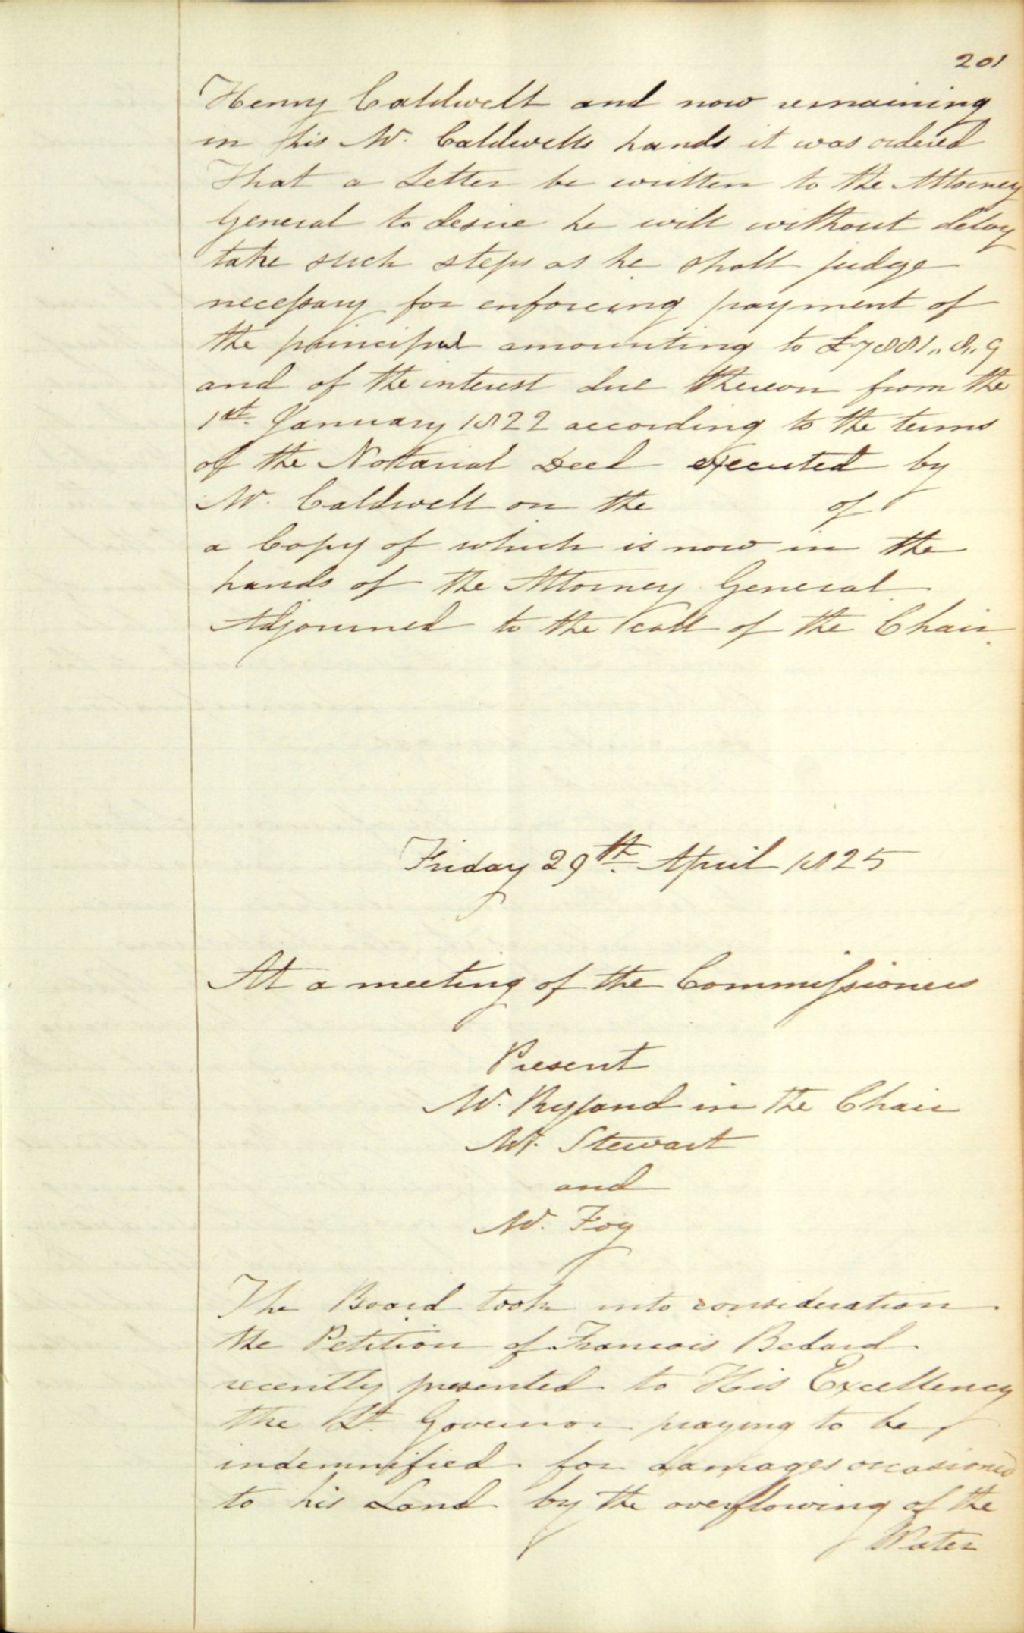 201
Henry Caldwell and now remaining
in his Mr. Caldwells hands it was ordered
That a Letter be written to the Attorney
General to desire he will without delay
take such steps as he shall judge
necessary for enforcing payment of
the principal amounting to £7881,,8,,9
and of the interest due thereon from the
1st. January 1822 according to the terms
of the Notarial Deed executed by
Mr. Caldwell on the of
a Copy of which is now in the
hands of the Attorney General
Adjourned to the Call of the Chair.
Friday 29th. April 1825
At a meeting of the Commissioners
Present
Mr. Ryland in the Chair
Mr. Stewart
and
Mr. Foy
The Board took into consideration
the Petition of Francois Bedard
recently presented to His Excellency
the Lt. Governor praying to be
indemnified for damages occasioned
to his Land by the overflowing of the
Water